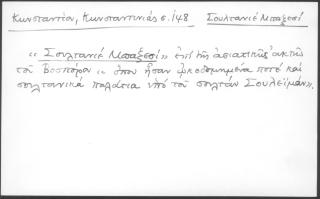 Κωνσταντίου, Κωνσταντινιάς σ. 148 Σουλτανιέ Μπαξεσί
« Σουλτανιέ Μπαξεσί» ἐπὶ τῆς ἀσιατικῆς ἀκτῆς
τοῦ Βοσπόρου « ὅπου ἦσαν ᾠκοδομημένα ποτὲ καὶ
σουλτανικὰ παλάτια ὑπὸ τοῦ σουλτὰν Σουλεϊμάν».